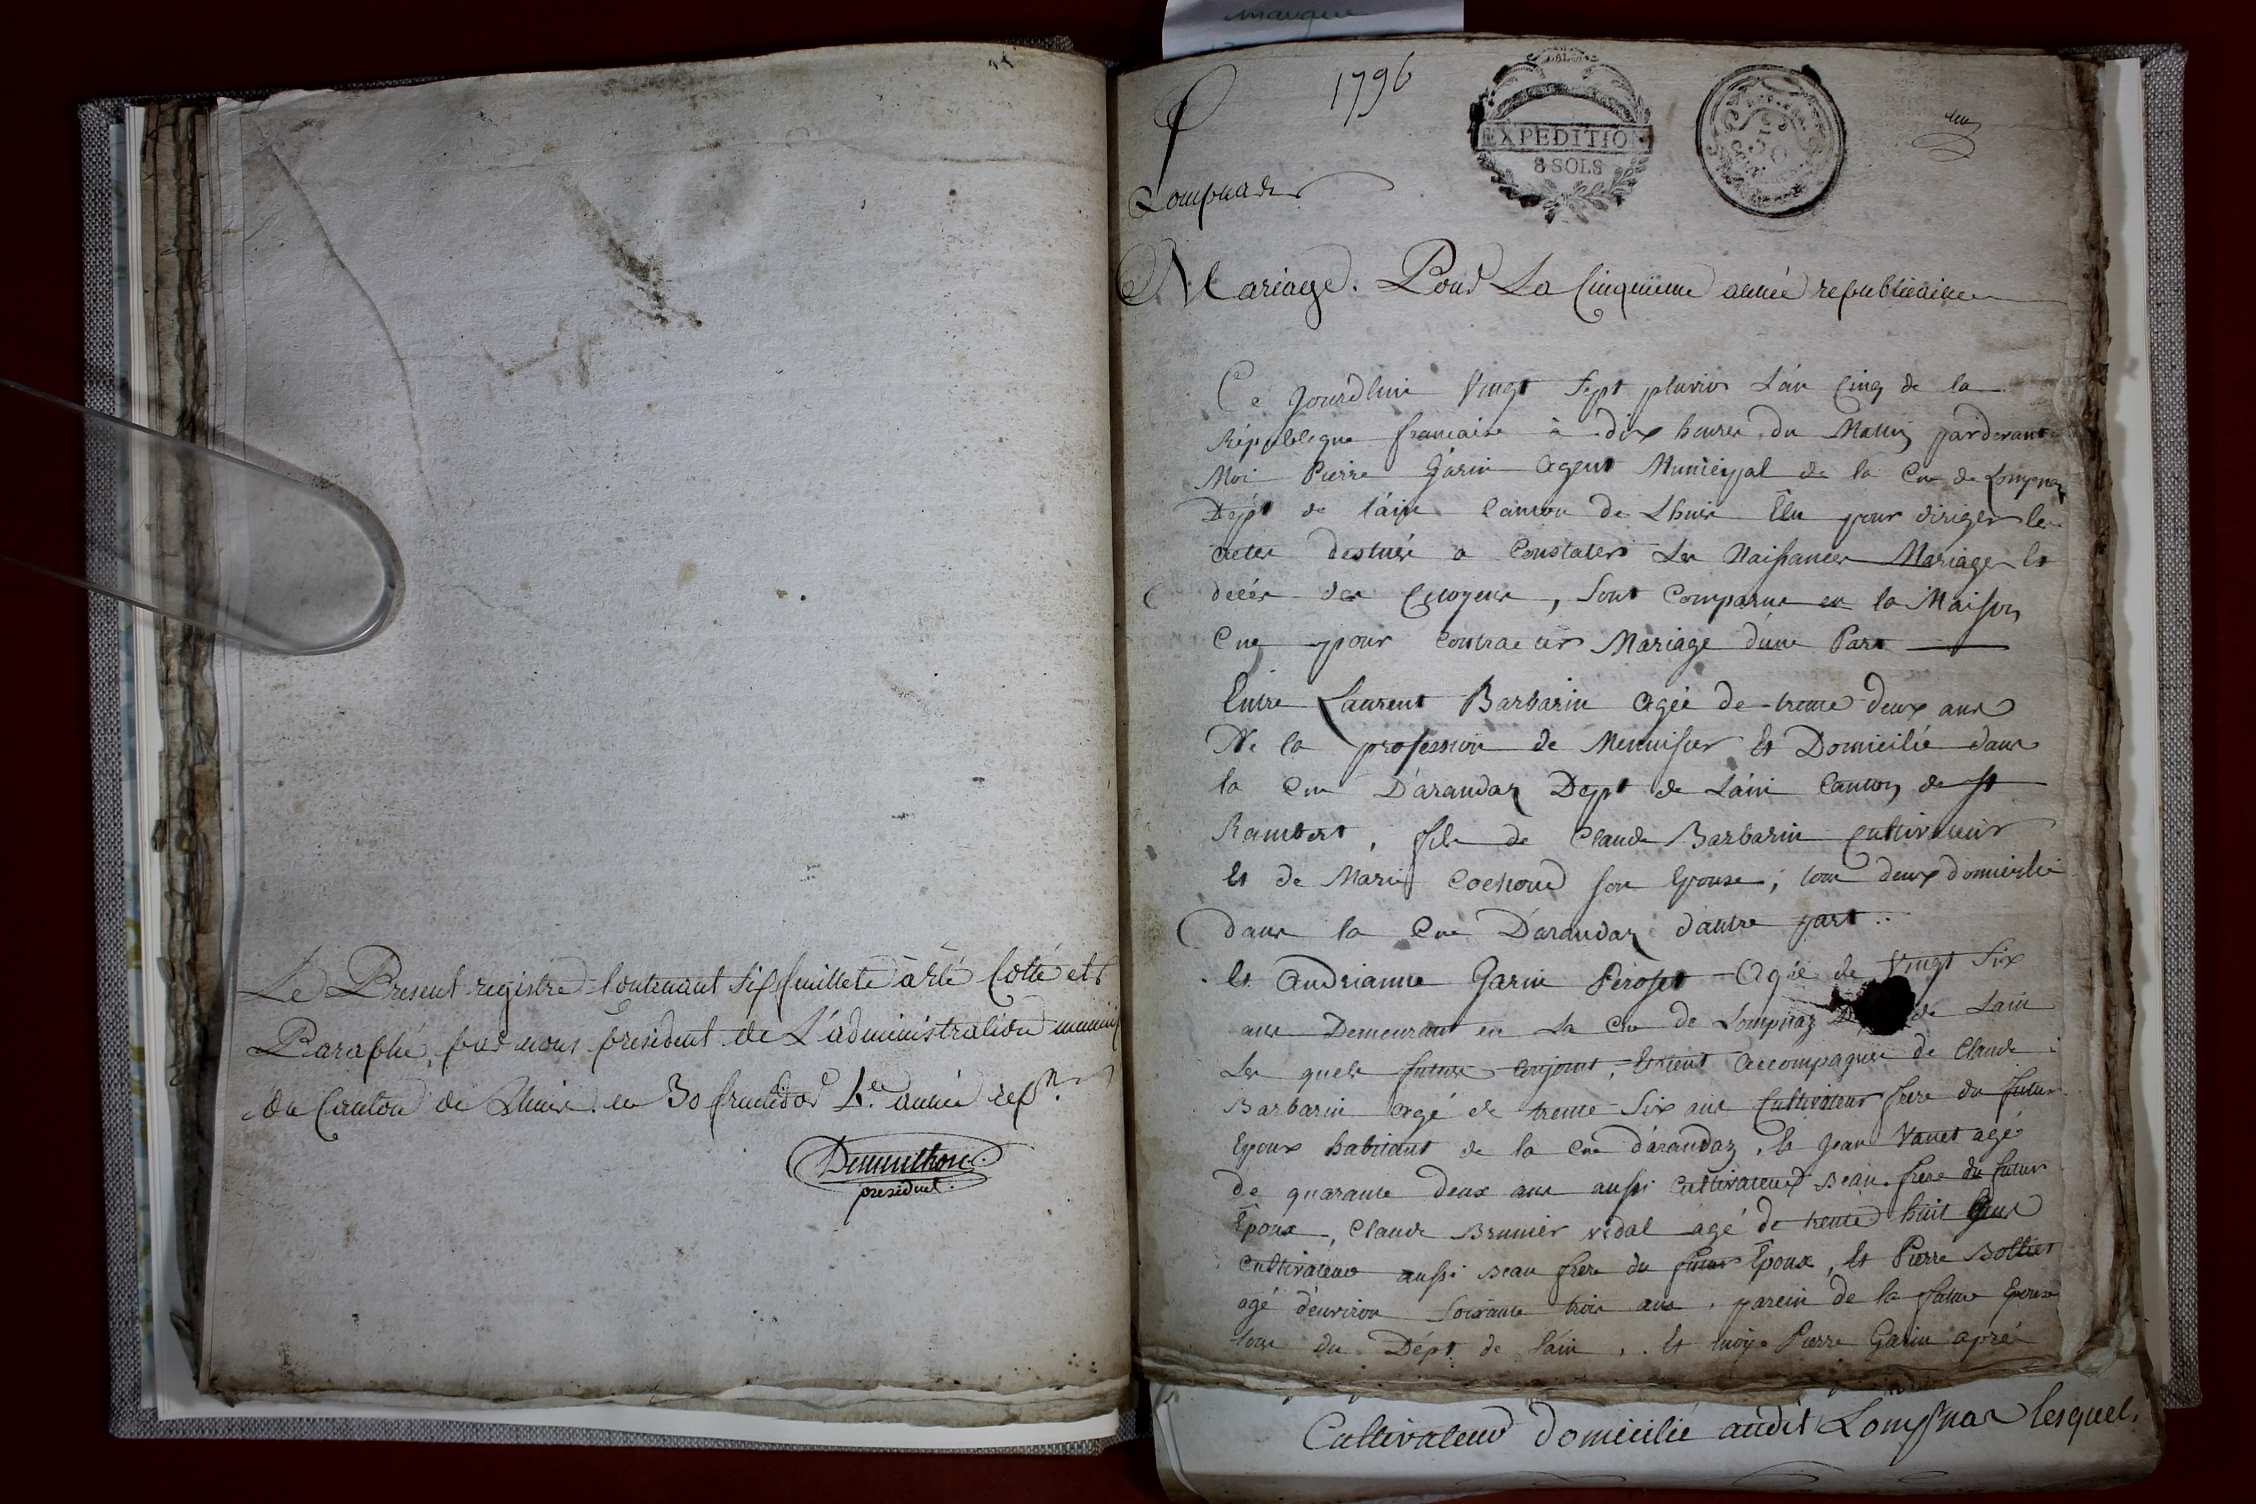 Le Present registre Contenant six feuillets à été Cotté et
Paraphé par nous president de L'administration municip
du Canton de Lhuis le 30 fructidor 4.e année rep.n
Demonthoux
president.
manque
1796
EXPEDITION
8 SOLS
Lompnas
Mariage. Pour La Cinquieme année republicaine
Ce Jourdhui Vingt Sept pluvios L'an Cinq de la
République francaise à dix heures du Matin pardevant
Moi Pierre Garin Agent Municipal de la Cne de Lompnaz
Dépt de l'ain Canton de Lhuis Elu pour diriger les
actes destinés a Constater Les Naissances Mariages Et
décés des Citoyens, Sont Comparus en la Maison
Cne pour Contracter Mariage d'une Part
Entre Laurent Barbarin Agée de trente deux ans
De la profession de Menuisier Et Domicilié dans
la Cne D'arandaz Dept de L'ain Canton de St
Rambert, fils de Claude Barbarin Cultivateur
Et de Marie Cochoud son Epouse; tous deux domicilié
dans la Cne D'arandaz d'autre part..
Et Andrianne Garin Péroset Agée de Vingt Six
ans Demeurant en La Cne de Lompnaz de Lain
Les quels futurs Conjoint, Etoient Accompagnés de Claude
Barbarin agé de trente Six ans Cultivateur frere du futur
Epoux habitant de la Cne d'arandaz, Et Jean Vanet agé
de quarante deux ans aussi Cultivateur Beau-frere du futur
Epoux, Claude Brunier vidal agé de trente huit ans
Cultivateur aussi Beau frere du futur Epoux, Et Pierre Bollier
agé d'environ Soixante trois ans, parein de la future Epouse
tous du Dépt de l'ain, Et moy Pierre Garin aprés
Cultivateur domicilié audit Lompnas lesquel.